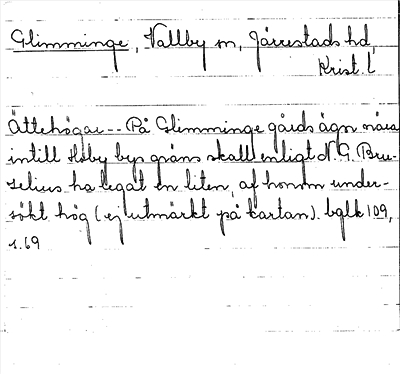 Glimminge, Vallby sn, Järrestads hd,
Krist. l
Ättehögar -- På Glimminge gårds ägor nära
intill Höby bys gräns skall enligt N. G. Bru-
zelius ha legat en liten, af honom under-
sökt hög (ej utmärkt på kartan). bglk 109,
s. 69